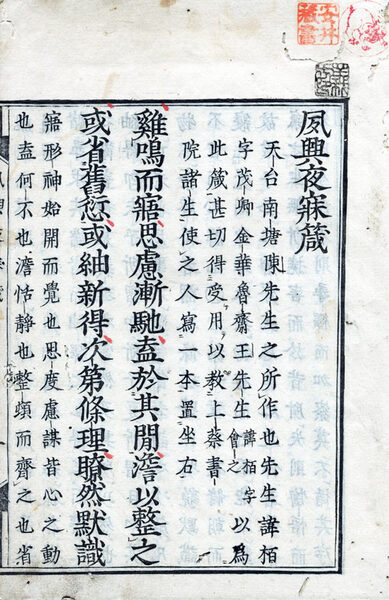 夙興夜寐箴
天台南塘陳先生之所作也先生諱栢
字茂卿金華魯齋王先生諱栢字會之以為
此箴甚切得受用以教上蔡書
院諸生使之人寫一本置坐右
雞鳴而寤思慮漸馳盍於其閒澹以整之
或省舊愆或紬新得次第條理瞭然默識
寤形神始開而覺也思度慮謀皆心之動
也盍何不也澹恬靜也整頓而齊之也省